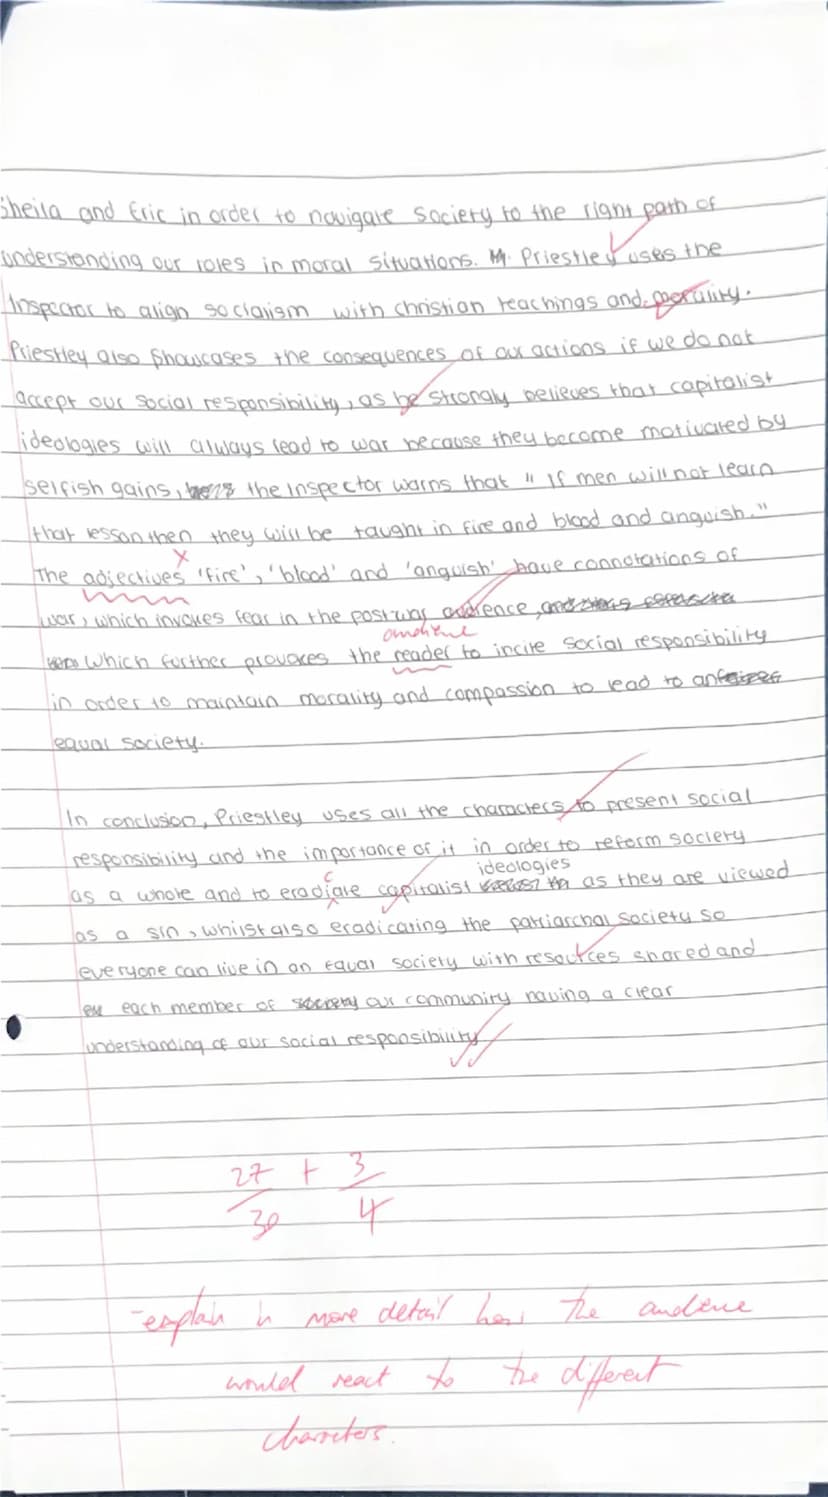 Sheila and Eric in order to navigate society to the right path of
understanding our roles in moral situations. Priestley uses the
Inspector to align soclaism with christian teachings and morality.
Priestley also showcases the consequences of our actions if we do not
accept our social responsibility, as he strongly believes that capitalist
ideologies will always lead to war because they become motivated by
selfish gains, the inspector warns that " If men will not learn
that lesson then they will be taught in fire and blood and anguish."
x
The adjectives 'fire', 'blood' and 'anguish' have connotations of
war, which invokes fear in the postwar audience,
audience
which further provokes the reader to incite social responsibility
in order to maintain morality and compassion to lead to an
equal society.
In conclusion, Priestley uses all the characters to present social
responsibility and the importance of it in order to reform society
c ideologies
as a whole and to eradiate capitalist as they are viewed
as a sin, whilst also eradicating the patriarchal society so
everyone can live in an equal society with resources shared and
each member of our community having a clear
understanding of our social responsibility
27/30 + 3/4
- explain in more detail how the audience
would react to the different
characters.